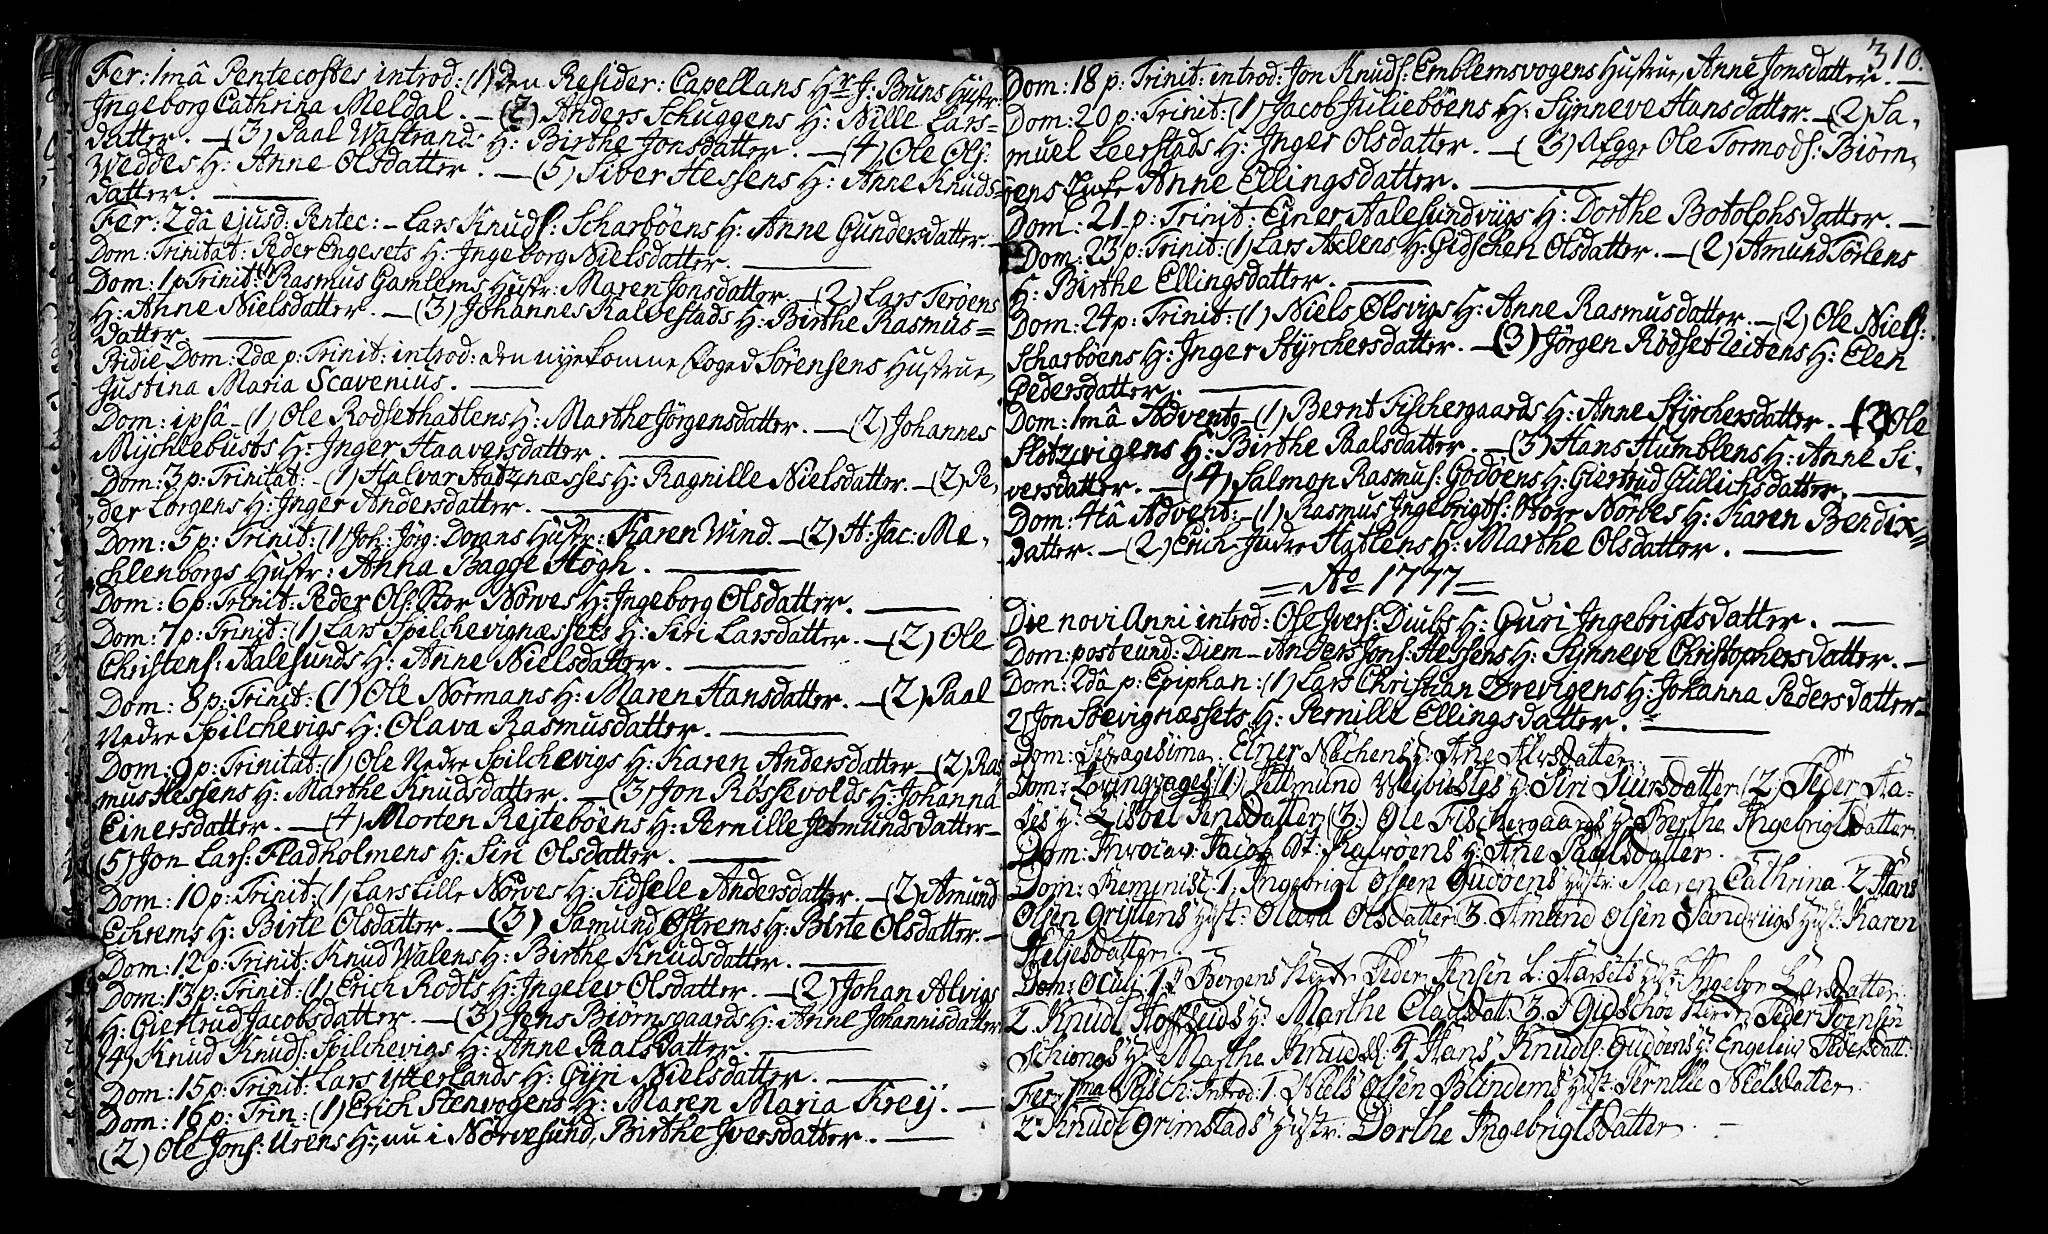 Fer: 1mâ Pentecostes introd: (1) den Resider: Capellans Hr J: Bruns Hustr:
Ingeborg Cathrina Meldal. — (2) Anders Schuggens H: Nille Lars=
datter. — (3) Paal Wastrand: H: Birthe Jonsdatter. — (4) Ole Ols:
Weddes H: Anne Olsdatter. — (5) Siver Hessens H: Anne Knuds=
datter. —
Fer: 2dâ ejusd: Pentec: — Lars Knuds: Scharbøens H: Anne Gundersdatter. —
Dom: Trinitat: Peder Engesets H: Ingeborg Nielsdatter. —
Dom: 1 p Trinit: Rasmus Gamlems Hustr: Maren Jonsdatter — (2) Lars Terøens
H: Anne Nielsdatter. — (3) Johannes Kalvestads H: Birthe Rasmus=
datter —
Pridie Dom: 2dæ p: Trinit: introd: den nyekomne Foged Sørensens Hustrue,
Justina Maria Scavenius. —
Dom: ipsâ — (1) Ole Rodsethatlens H: Marthe Jørgensdatter. — (2) Johannes
Mychlebusts H: Inger Haaversdatter. —
Dom: 3 p: Trinitat: — (1) Halvar Hatznæsses H: Ragnille Nielsdatter. — (2) Pe,
der Lorgens H: Inger Andersdatter. —
Dom: 5 p: Trinit: (1) Joh: Jörg: Dorans Hustr: Karen Wind — (2) H: Jac: Me,
chlenborgs Hustr: Anna Bagge Høgh. —
Dom: 6 p: Trinit: Peder Ols: Stor Nørves H: Ingeborg Olsdatter. —
Dom: 7 p: Trinit: (1) Lars Spilchevignæssets H: Siri Larsdatter. — (2) Ole
Christens: Aalesunds H: Anne Nielsdatter. —
Dom: 8 p: Trinit: (1) Ole Normans H: Maren Hansdatter. — (2) Paal
Nedre Spilchevigs H: Olava Rasmusdatter. —
Dom: 9 p: Trinitat: (1) Ole Nedre Spilchevigs H: Karen Andersdatter — (2) Ras
mus Hessens H: Marthe Knudsdatter. — (3) Jon Røssevolds H: Johanna
Einersdatter. — (4) Morten Rejtebøens H: Pernille Jetmundsdatter —
(5) Jon Lars: Fladholmens H: Siri Olsdatter. —
Dom: 10 p: Trinit: (1) Lars Lille Nørves H: Sidsele Andersdatter. — (2) Amund
Echrems H: Birte Olsdatter. — (3) Samund Østrems H: Birte Olsdatter. —
Dom: 12 p: Trinit: Knud Walens H: Birthe Knudsdatter. —
Dom: 13 p: Trinit: (1) Erich Rodts H: Ingelev Olsdatter. — (2) Johan Alvigs
H: Giertrud Jacobsdatter. — (3) Jens Biørnsgaards H: Anne Johannisdatter
(4) Knud Knuds: Spilchevigs H: Anne Paalsdatter. —
Dom: 15 p: Trinit: Lars Ytterlands H: Gyri Nielsdatter. —
Dom: 16 p: Trin: (1) Erich Stenvogens H: Maren Maria Krey. —
(2) Ole Jons: Urens H: nu i Nørvesund, Birthe Iversdatter. —
310.
Dom: 18 p: Trinit: introd: Jon Knuds: Emblemsvogens Hustrue, Anne Jonsdatter. —
Dom: 20 p: Trinit: (1) Jacob Juliebøens H: Synneve Hansdatter. — (2) Sa,
muel Leerstads H: Inger Olsdatter. — (3) Ole Tormods: Biørn,
øens Anne Ellingsdatter. —
Dom: 21 p: Trinit: Einer Aalesundviigs H: Dorthe Botolphsdatter. —
Dom: 23 p: Trinit: (1) Lars Axlens H: Gidschen Olsdatter. — (2) Amund Tørlens
H: Birthe Ellingsdatter. —
Dom: 24 p: Trinit: (1) Niels Olsvigs H: Anne Rasmusdatter. — (2) Ole Niels:
Scharbøens H: Inger Styrchersdatter. — (3) Jørgen Rødsetleitens H: Elen
Pedersdatter. —
Dom: 1mâ Advent — (1) Bernt Fischergaards H: Anne Styrchersdatter. — (2) Ole
Slotzvigens H: Birthe Paalsdatter. — (3) Hans Humblens H: Anne Si,
versdatter. — (4) Salmon Rasmus: Godøens H: Giertrud Gillichsdatter. —
Dom: 4tâ Advent: — (1) Rasmus Ingebrigts: Store Nørves H: Karen Bendix=
datter. — (2) Erich Indre Hatlens H: Marthe Olsdatter. —
= Ao 1777 =
Die novi Anni introd: Ole Ivers: Diubs H: Guri Ingebrigtsdatter. —
Dom: post eund: Diem — Anders Jons: Hessens H: Synneve Christophersdatter. —
Dom: 2dâ p: Epiphan: (1) Lars Christian Brevigens H: Johanna Pedersdatter —
2) Jon Søevignæssets H: Pernille Ellingsdatter. —
Dom: Sexagesima. Einer H: Ane
Dom: (1) Jettmund H: Siri (2) Peder
H: Lisbet Jensdatter (3) Ole Fischergaards H: Berthe Ingebrigtsdatter.
Dom: Invocav: Jacob H: Ane Paalsdatter.
Dom: Reminisc: 1. Ingebrigt Olsen Gudøens Hustr: Maren Cathrina. 2. Hans
Olsen Hust: Olava Olsdatter 3. Amund Olsen Sandviigs Hust: Karen
Dom: Oculi 1. Peder Jensen Ingebor Larsdatter.
2. Knud H: Marthe 3. Peder
H: Marthe 4. Hans Knuds: Gudøens H: Pedersdatt.
Fer: 1ma Pasch: Introd: 1. Niels Olsen Blindems Hust: Pernille Nielsdatter.
2. Knud Grimstads Hustr: Dorthe Ingebrigtsdatter. —